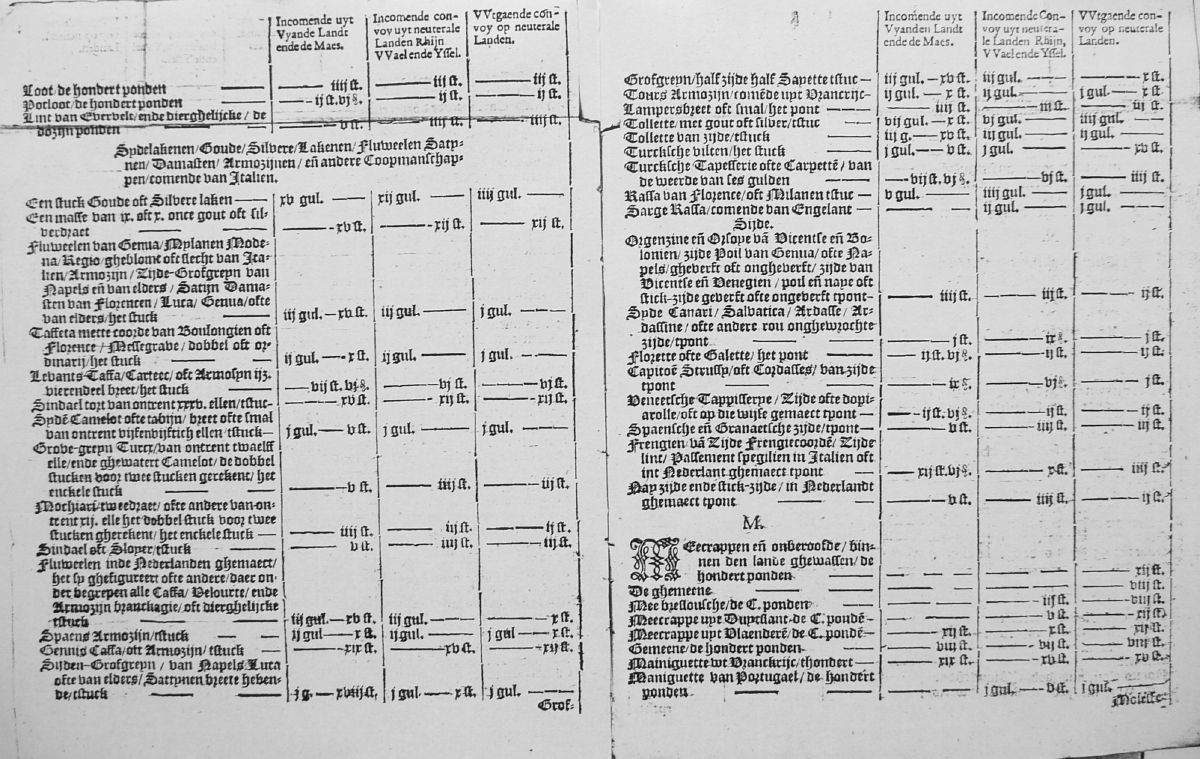 Incomende uyt
Vyande Landt
ende de Maes.
Incomende con-
voy uyt neuterale
Landen Rhijn
VVael ende Yssel.
VVtgaende con-
voy op neuterale
Landen.
Loot/de hondert ponden —— iiij st. —— iiij st. —— iij st.
Potloot/de hondert ponden —— ij st. vj ₰. —— ij st. —— ij st.
Lint van Evervelt/ende dierghelijcke/de
dozijn ponden —— v st. —— iiij st. —— iiij st.
Sydelakenen/Goude/Silvere/Lakenen/Fluweelen Saty-
nen/Damasten/Armozijnen/en̄ andere Coopmanschap-
pen/comende van Italien.
Een stuck Goude oft Silvere laken —— xv gul. —— xij gul. —— iiij gul. ——
Een masse van ix. oft x. once gout oft sil-
verdraet —— xv st. —— xij st. —— xij st.
Fluweelen van Genua/Mylanen Mode-
na/Regio/gheblomt oft slecht van Ita-
lien/Armozijn/Zijde-Grofgreyn van
Napels en̄ van elders/Satijn Dama-
sten van Florencen/Luca/Genua/ofte
van elders/het stuck —— iij gul. — xv st. iij gul. —— j gul. ——
Taffeta mette coorde van Boulongien oft
Florence/Messegrave/dobbel oft or-
dinarij/het stuck —— ij gul. — x st. ij gul. —— j gul. ——
Levants-Caffa/Carteet/oft Armosyn ij3.
vierendeel breet/het stuck —— vij st. vj ₰. —— vj st. —— vj st.
Sindael tozt van ontrent xxxv. ellen/tstuc- —— xv st. —— xij st. —— xij st.
Sydē Camelot ofte tabijn/breet ofte smal
van ontrent vijfenvijftich ellen/tstuck — j gul. — v st. j gul. —— j gul. ——
Grove-greyn Turcx/van ontrent twaelff
elle/ende ghewatert Camelot/de dobbel
stucken voor twee stucken gerekent/het
enckele stuck —— v st. —— iiij st. —— iij st.
Mochiari-tweedraet/ofte andere van on-
trent xij. elle het dobbel stuck voor twee
stucken gherekent/het enckele stuck — iiij st. —— iij st. —— ij st.
Sindael oft Sloyer/tstuck —— v st. —— iiij st. —— iij st.
Fluweelen inde Nederlanden ghemaect/
het sy ghefigureert ofte andere/daer on-
der begrepen alle Caffa/Velourte/ende
Armozijn branckagie/oft dierghelijcke
tstuck —— iij gul. — xv st. iij gul. —— x st.
Spaens Armozijn/tstuck —— ij gul. — x st. ij gul. —— j gul. — x st.
Gennis Caffa/oft Armozijn/tstuck —— xix st. —— xv st. —— xij st.
Sijden-Grofgreyn/van Napels/Luca
ofte van elders/Sattynen breete heben-
de/tstuck —— j g. — xviij st. j gul. — x st. j gul. ——
Grof-
Incomende uyt
Vyanden Landt
ende de Maes.
Incomende Con-
voy uyt neutera-
le Landen Rhijn,
VVael ende Yssel.
VVtgaende con-
voy op neuterale
Landen.
Grofgreyn/half zijde half Sayette tstuc — iij gul. — xv st. iij gul. —— x st.
Tours Armozijn/comēde uyt Vranckrijc- ij gul. — x st. ij gul. —— j gul. — x st.
Lampersbreet oft smal/het pont —— iiij st. —— iij st. —— iij st.
Tollette met gout oft silver/tstuc —— vij gul. — x st. vj gul. —— iij gul. ——
Tollette van zijde/tstuck —— iij g. — xv st. iij gul. —— ij gul. ——
Turcksche vilten/het stuck —— j gul. — v st. j gul. —— xv st.
Turcksche Tapesserie ofte Carpettē/van
de weerde van ses gulden —— vij st. vj ₰. —— vj st. —— iiij st.
Rassa van Florence/oft Milanen tstuc — v gul. —— iiij gul. —— j gul. ——
Sarge Rassa/comende van Engelant —— ij gul. —— j gul. ——
Sijde.
Orgenzine en̄ Orsoye vā Vicentse en̄ Bo-
lonien/zijde Poil van Genua/ofte Na-
pels/gheverft oft ongheverft/zijde van
Vicentse en̄ Venegien/poil en̄ nape oft
stick-zijde geverft ofte ongeverft tpont- —— iiij st. —— iij st. —— ij st.
Syde Canari/Salvatica/Ardasse/Ar-
dassine/ofte andere rou onghewrochte
zijde/tpont —— j st. —— ix ₰. —— j st.
Florette ofte Galette/het pont —— ij st. vj ₰. —— ij st. —— ij st.
Capitoē Strussy/oft Cordasses/van zijde
tpont —— ix ₰. —— vj ₰. —— j st.
Veneetsche Tappisserye/Zijde ofte dopi-
arolle/oft op die wijse gemaect tpont — ij st. vj ₰. —— ij st. —— ij st.
Spaensche en̄ Granaetsche zijde/tpont — v st. —— iij st. —— ij st.
Frengien vā Zijde Frengiecoordē/Zijde
lint/Passement spegilien in Italien oft
int Nederlant ghemaect tpont —— xij st. vj ₰. —— x st. —— iiij st.
Nay zijde ende stick-zijde/in Nederlandt
ghemaect tpont —— v st. —— iiij st. —— ij st.
M.
MEecrappen en̄ onberoofde/bin-
nen den lande ghewassen/de
hondert ponden —— xij st.
De ghemeene —— viij st.
Mee bressousche/de C. ponden —— iij st. —— v st.
Meecrappe uyt Duytslant-de C. pondē- —— vj st. —— xij st.
Meecrappe uyt Vlaenderē/de C. pondē- —— xij st. —— x st. —— xij st.
Gemeene/de hondert ponden —— viij st. —— vj st. —— viij st.
Mainiguette wt Vranckrijc/thondert — xix st. —— xv st. —— xv st.
Maniguette van Portugael/de hondert
ponden —— j gul. — v st. j gul. ——
Molesse-